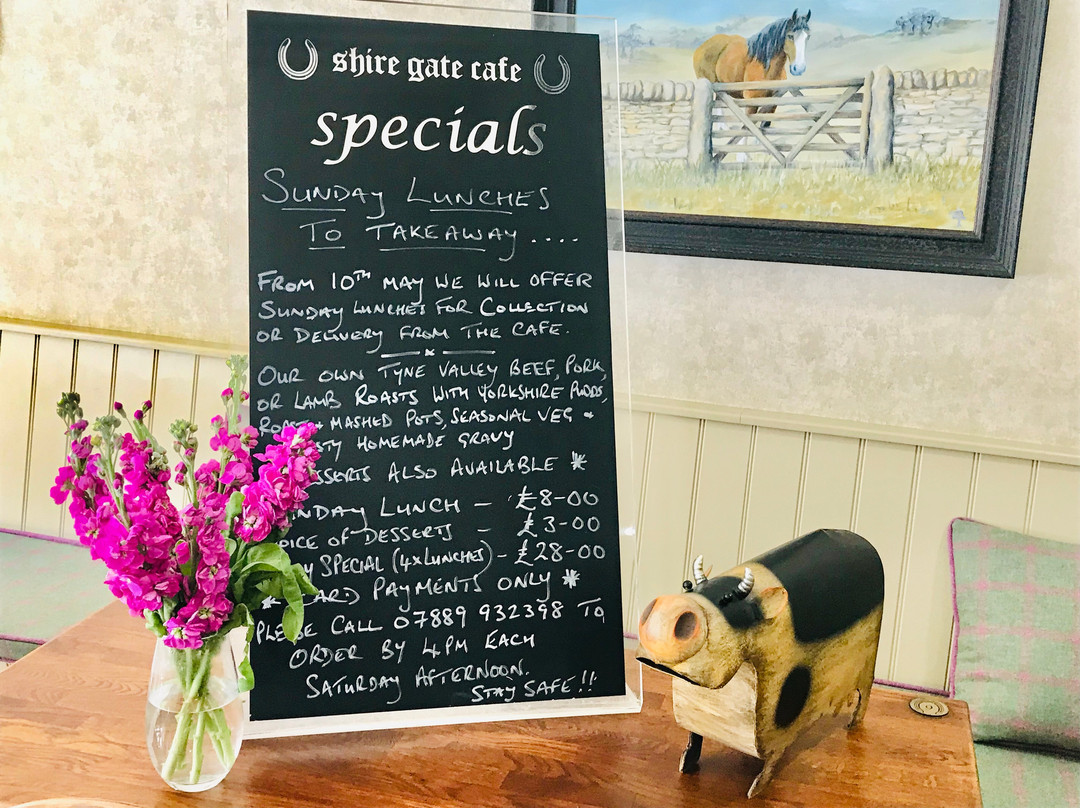 shire gate cafe
specials
SUNDAY LUNCHES
TO TAKEAWAY....
FROM 10TH MAY WE WILL OFFER
SUNDAY LUNCHES FOR COLLECTION
OR DELIVERY FROM THE CAFE.
OUR OWN TYNE VALLEY BEEF, PORK,
OR LAMB ROASTS WITH YORKSHIRE PUDDS,
ROAST & MASHED POTS, SEASONAL VEG &
HOMEMADE GRAVY
ALSO AVAILABLE *
LUNCH - £8-00
OF DESSERTS - £3-00
SPECIAL (4xLUNCHES) - £28-00
* CARD PAYMENTS ONLY *
PLEASE CALL 07889 932398 TO
ORDER BY 4PM EACH
SATURDAY AFTERNOON.
STAY SAFE!!